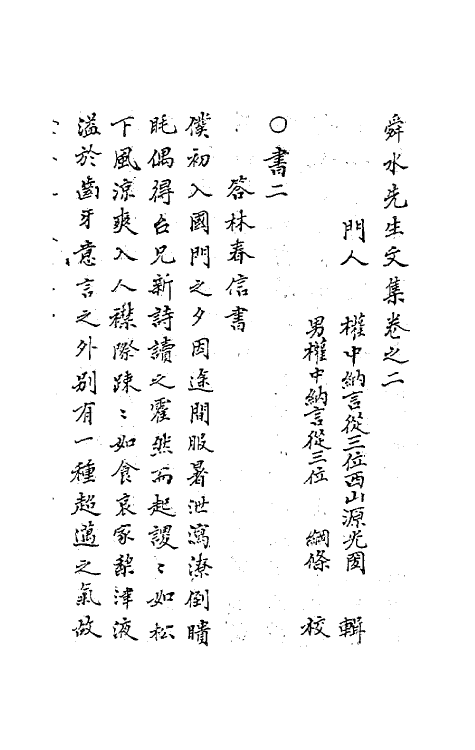 舜水先生文集卷之二
門人 權中納言從三位西山源光圀 輯
男權中納言從三位 綱條 校
○書二
答林春信書
僕初入國門之夕因途間服暑泄瀉潦倒瞶
眊偶得台兄新詩讀之霍然而起謖〻如松
下風涼爽入人襟際踈〻如食哀家梨津液
溢於齒牙意言之外別有一種超邁之氣故